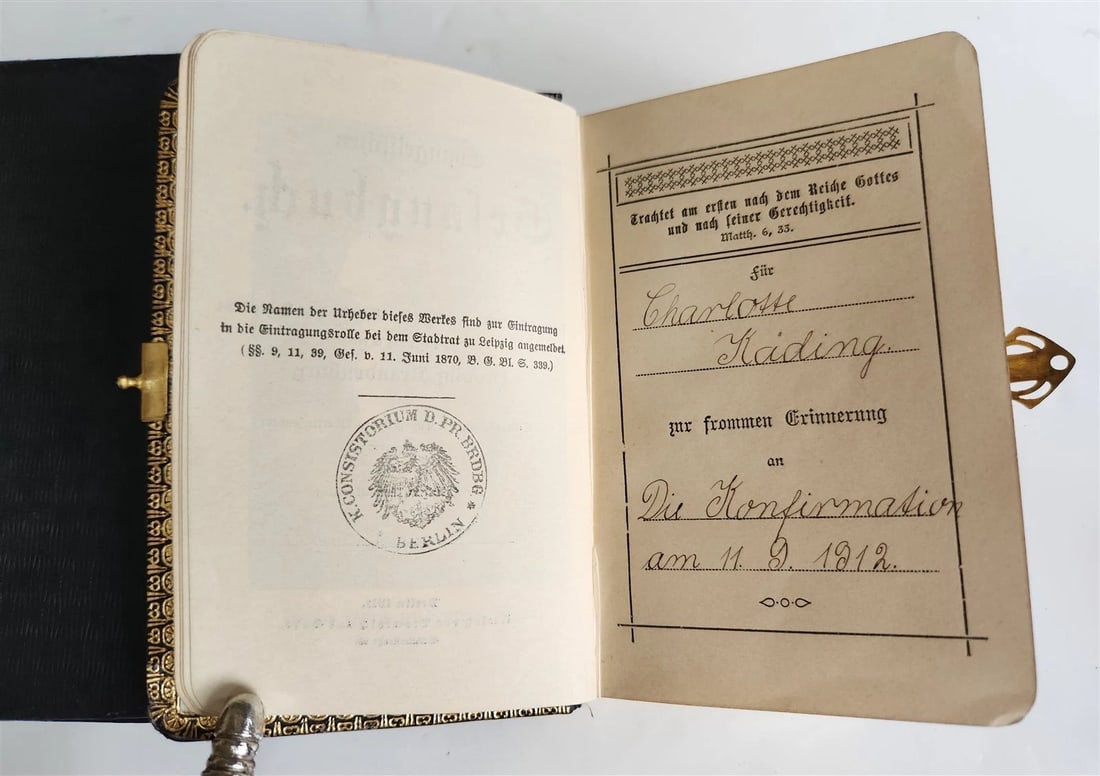 Die Namen der Urheber dieses Werkes sind zur Eintragung
in die Eintragungsrolle bei dem Stadtrat zu Leipzig angemeldet.
(§§. 9, 11, 39, Ges. v. 11. Juni 1870, B. G. Bl. S. 339.)
K. CONSISTORIUM D. PR. BRDBG * BERLIN
Trachtet am ersten nach dem Reiche Gottes
und nach seiner Gerechtigkeit.
Matth. 6, 33.
Für
Charlotte
Käding.
zur frommen Erinnerung
an
Die Konfirmation
am 11. 9. 1912.